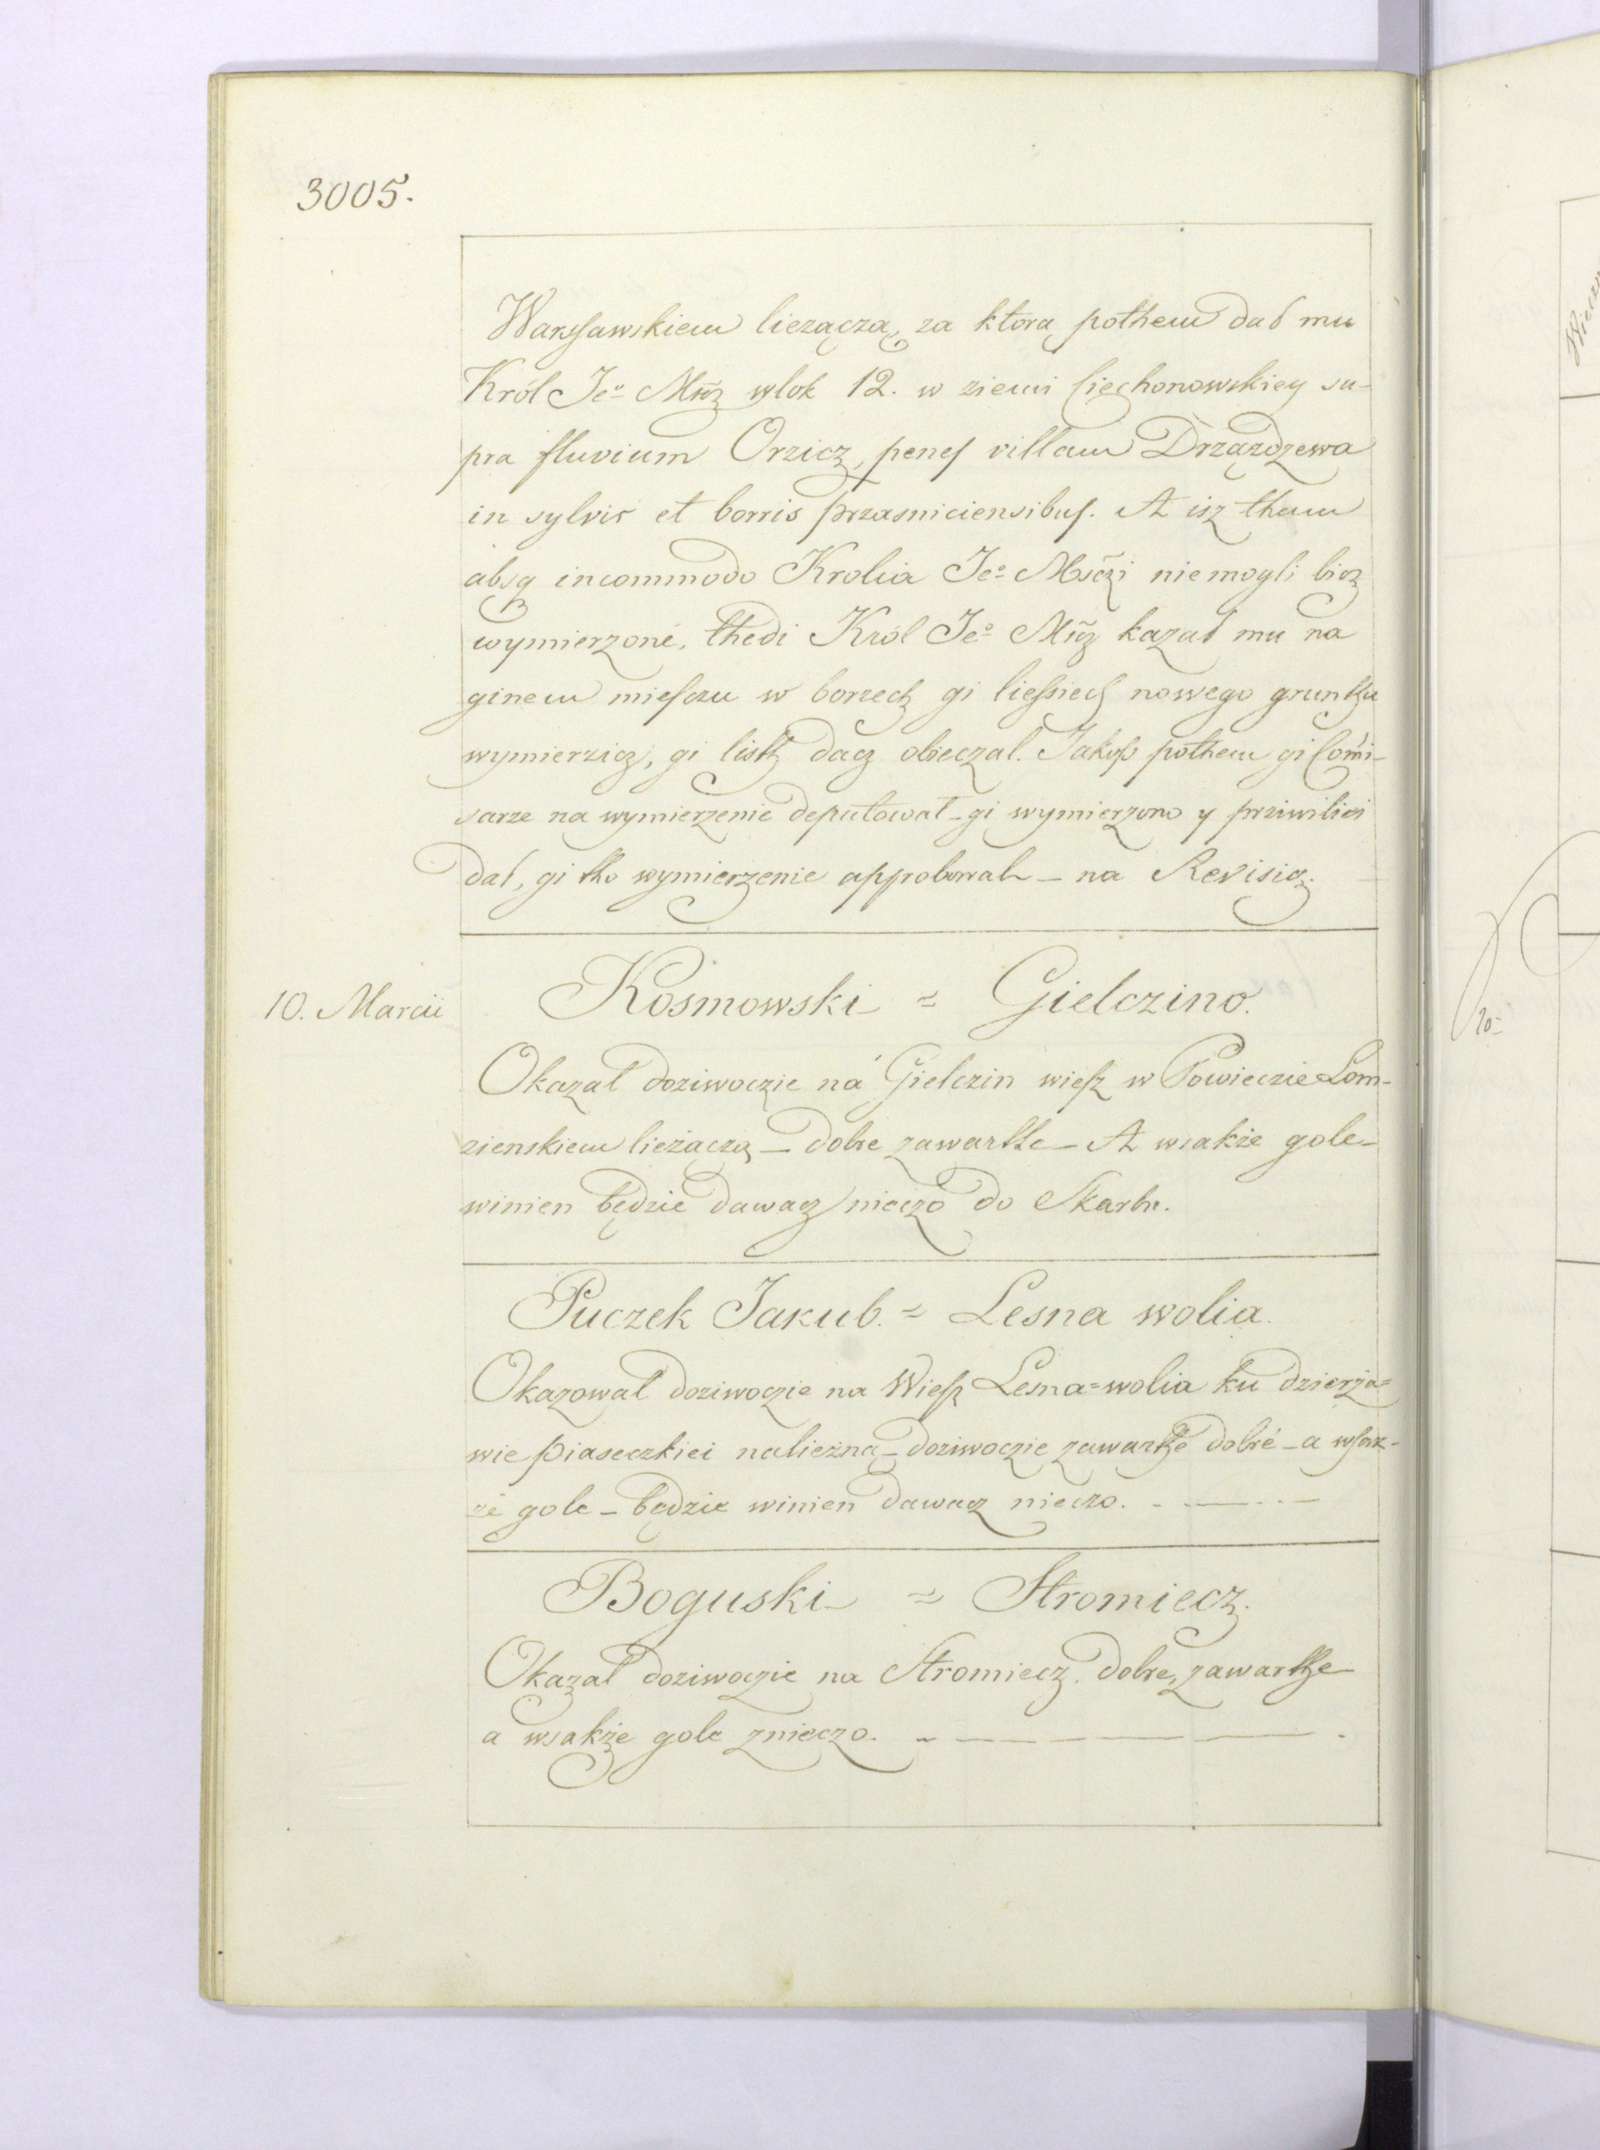 3005.
Warssawskiem liezączą, za ktorą pothem dał mu
Król Je° Mcz wlok 12. w ziemi Ciechonowskiey su-
pra fluvium Orzicz, penes villam Drzązdzewa
in sylvis et borris przasniciensibus. A isz tham
absq incommodo Krolia Je° Mści niemogli bicz
wymierzoné, thedi Król Je° Mcz kazał mu na
ginem miesczu w borzech gi liessiech nowego gruntu
wymierzicz, gi listh dacz obieczal. Jakosz pothem gi Comi-
sarze na wymierzenie deputował - gi wymierzono y prziwiliei
dał, gi tho wymierzenie approbował - na Revisią.
10. Marcii
Kosmowski = Gielczino.
Okazal doziwoczie na Gielczin wiesz w Powieczie Lom-
zienskiem lieżączą - dobre zawarthe - A wsakże gole -
winien będzie dawacz nieczo do Skarbu.
Puczek Jakub. = Lesna wolia.
Okazował doziwoczie na Wiesz Lesna=wolia ku dzierza=
wie piaseczkiei należną - doziwoczie zawarthe dobré - a wsak-
zé gole - będzie winien dawacz nieczo.
Boguski = Stromiecz.
Okazal doziwoczie na Stromiecz. dobre, zawarthe
a wsakże gole znieczo.
20-